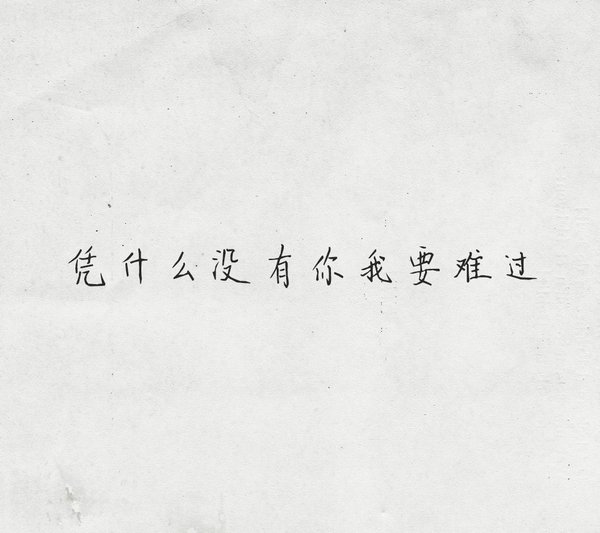 凭什么没有你我要难过